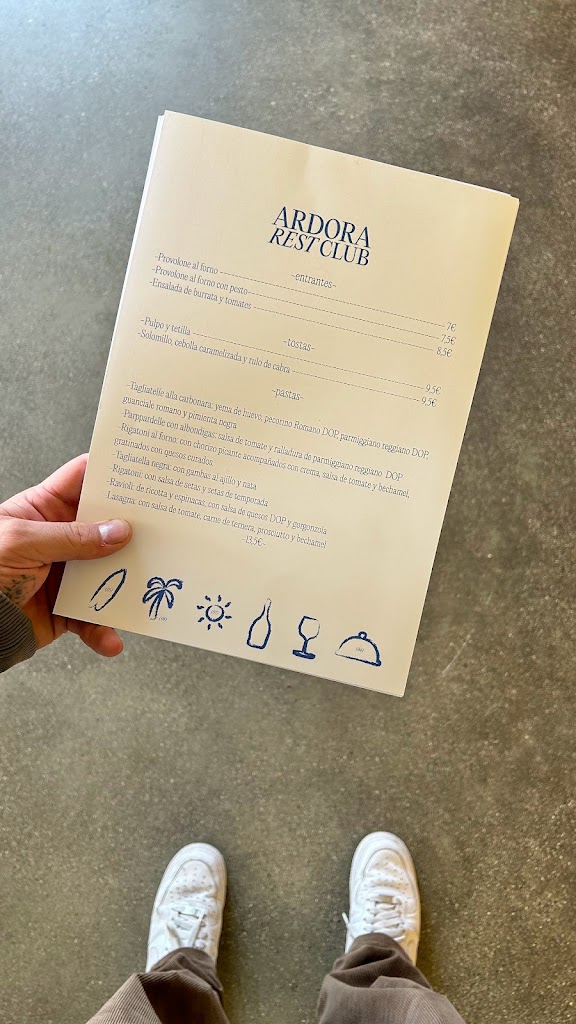 ARDORA
REST CLUB
-entrantes-
-Provolone al forno 7€
-Provolone al forno con pesto 7,5€
-Ensalada de burrata y tomates 8,5€
-tostas-
-Pulpo y tetilla 9,5€
-Solomillo, cebolla caramelizada y rulo de cabra 9,5€
-pastas-
-Tagliatelle alla carbonara: yema de huevo, pecorino Romano DOP, parmiggiano reggiano DOP,
guanciale romano y pimienta negra
-Parppardelle con albondigas: salsa de tomate y ralladura de parmiggiano reggiano DOP
-Rigatoni al forno: con chorizo picante acompañados con crema, salsa de tomate y bechamel,
gratinados con quesos curados
-Tagliatella negra: con gambas al ajillo y nata
-Rigatoni: con salsa de setas y setas de temporada
-Ravioli: de ricotta y espinacas, con salsa de quesos DOP y gorgonzola
-Lasagna: con salsa de tomate, carne de ternera, prosciutto y bechamel
-13,5€-